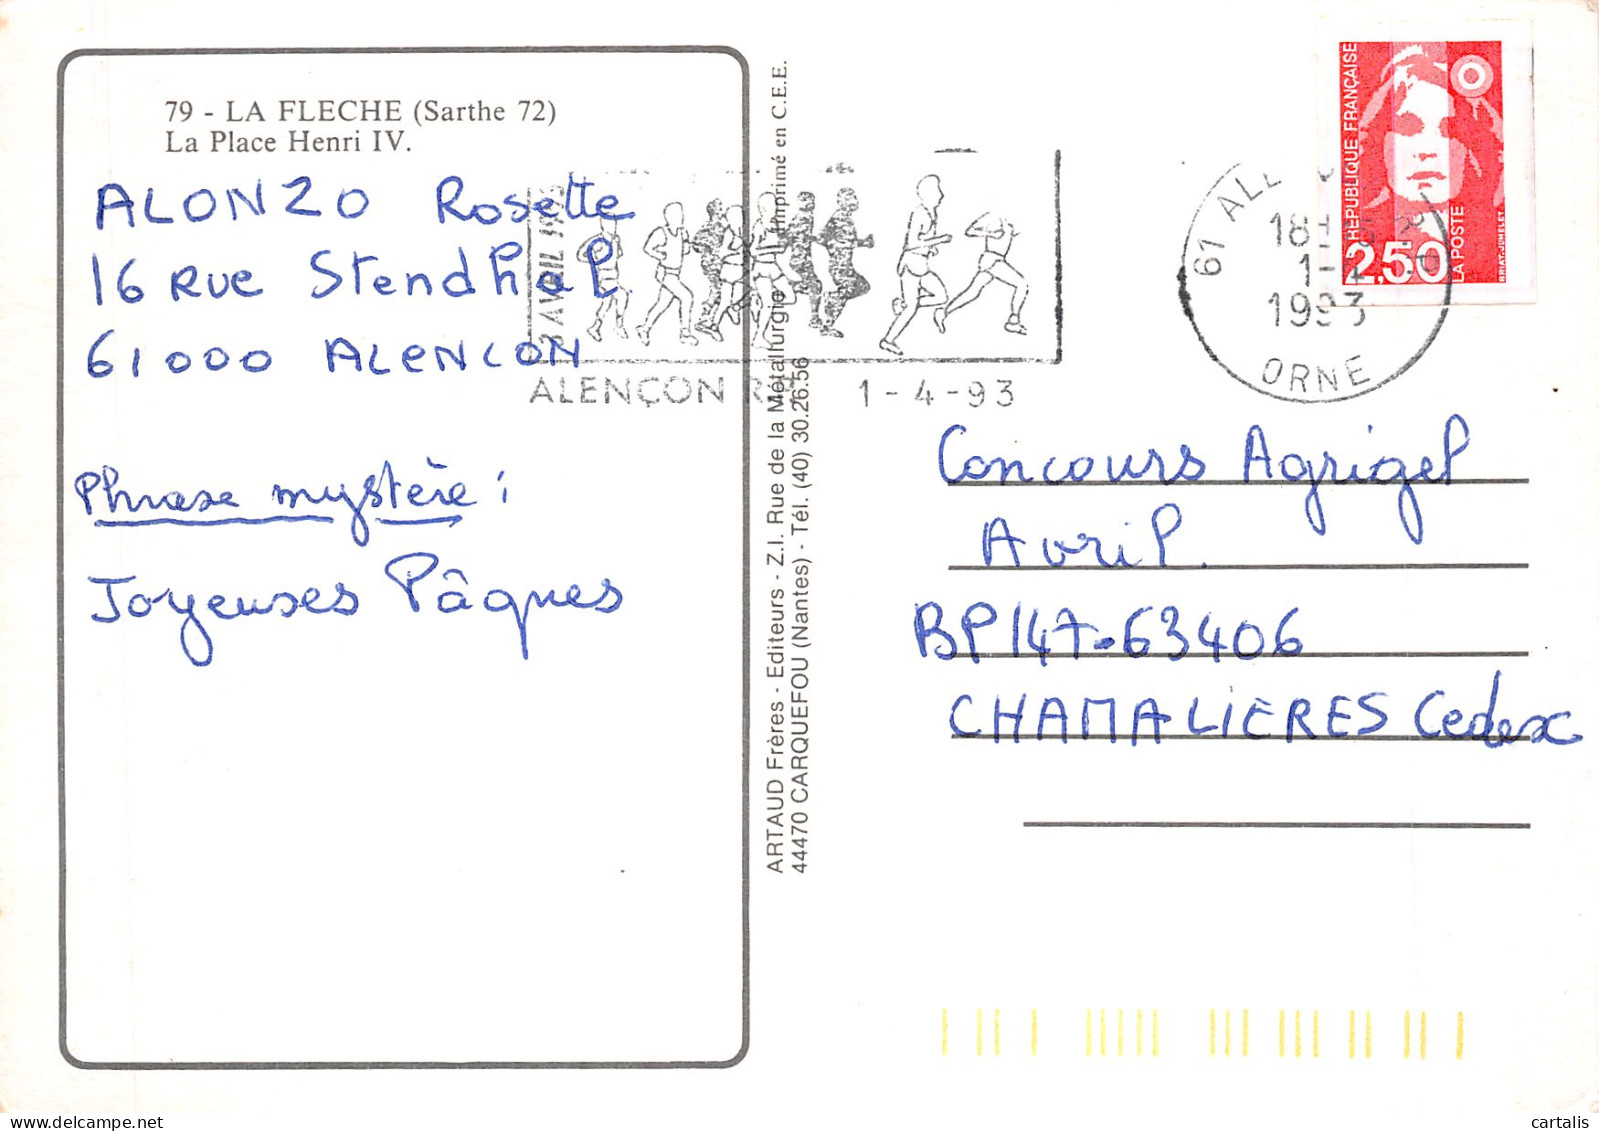 79 - LA FLECHE (Sarthe 72)
La Place Henri IV.
ALONZO Rosette
16 Rue Stendhal
61000 ALENCON
Phrase mystère :
Joyeuses Pâques
AVRIL
ALENÇON
1-4-93
ARTAUD Frères - Editeurs - Z.I. Rue de la Métallurgie Imprimé en C.E.E.
44470 CARQUEFOU (Nantes) - Tél. (40) 30.26.56
REPUBLIQUE FRANÇAISE
2,50
LA POSTE
BRIAT-JUMELET
61
18H
1-4
1993
ORNE
Concours Agrigel
Avril.
BP147-63406
CHAMALIERES Cedex
cartalis